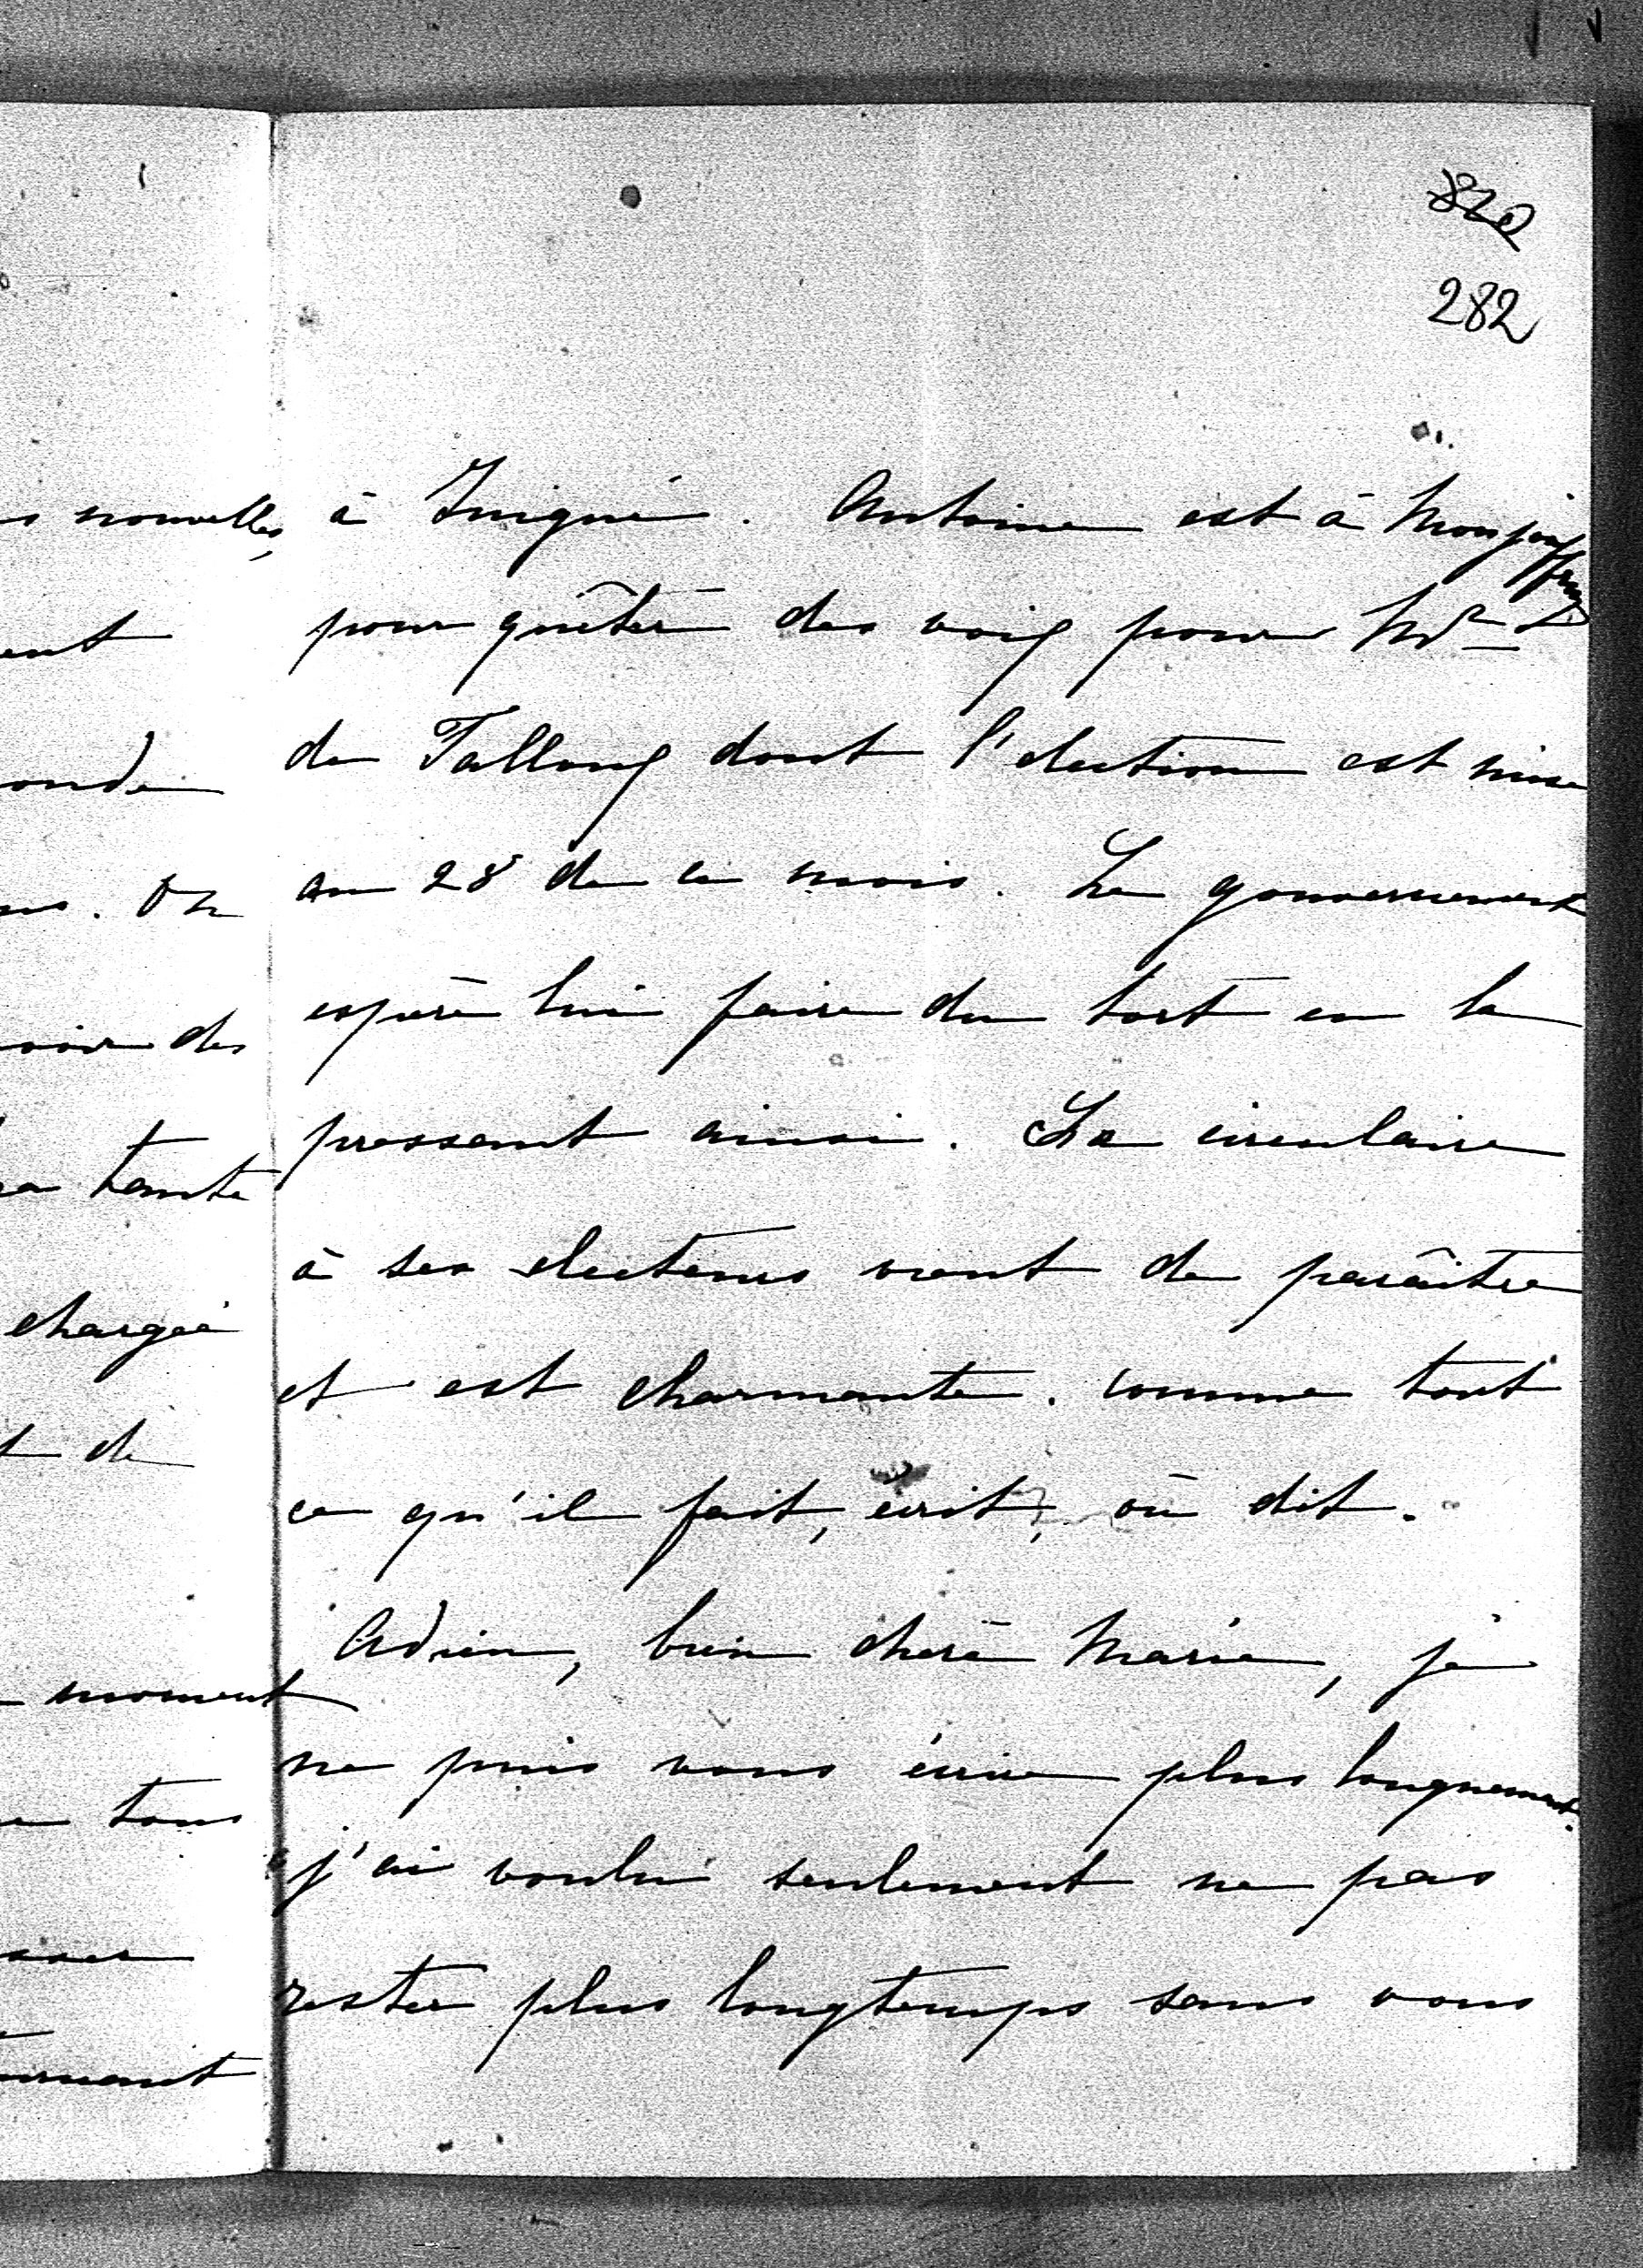 820
282
nouvelles,
à Juigné. Antoine est à Monjeoffroy
pour quêter des voix pour Mr
de Falloux dont l'élection est mise
au 28 de ce mois. Le gouvernement
espère lui faire du tort en la
pressant ainsi. La circulaire
à ses electeurs vient de paraître
et est charmante. comme tout
ce qu'il fait, écrit, où dit.
Adieu, bien chère Marie, je
ne puis vous écrire plus longuement.
j'ai voulu seulement ne pas
rester plus longtemps sans vous
On
des
tante
chargée
de
moment
tous